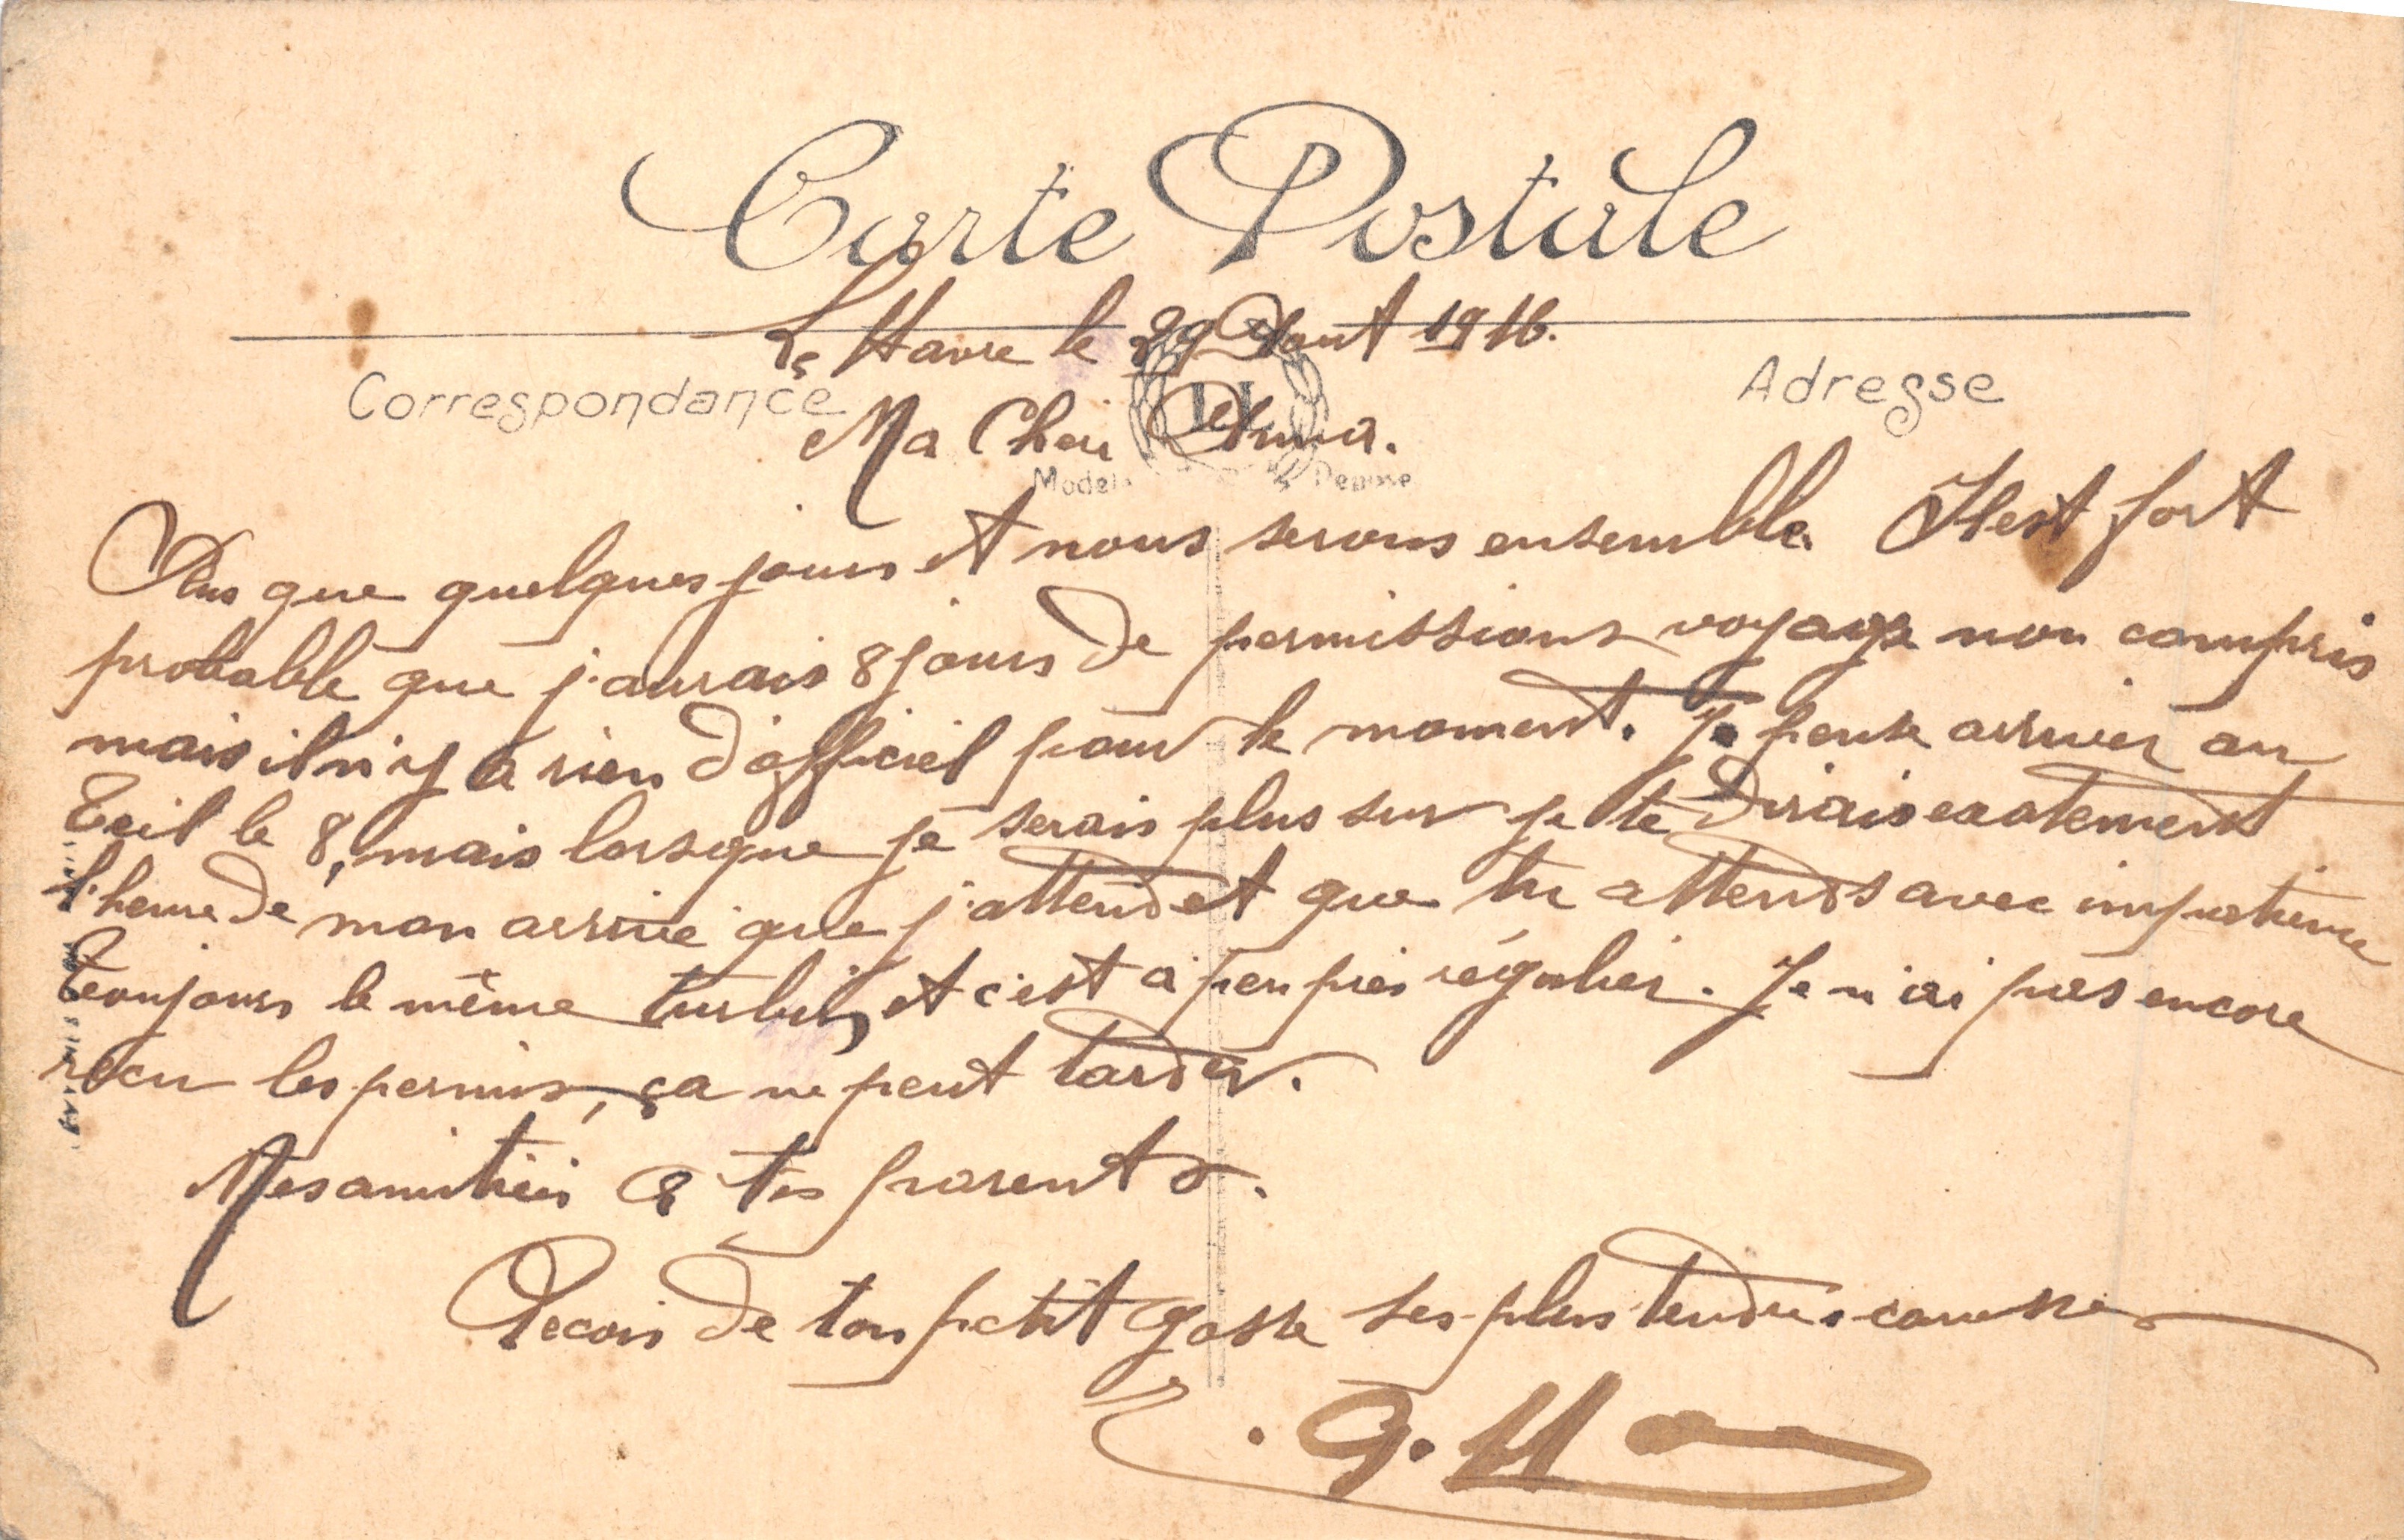 Carte Postale
Le Havre le 29 Aout 1916.
Correspondance
Adresse
Ma Cheri
Modele Déposé
Plus que quelques jours et nous serons ensemble. Il est fort
probable que j'aurais 8 jours de permissions voyage non compris
mais il n'y a rien d'officiel pour le moment. Je pense arriver au
Teil le 8, mais lorsque je serais plus sur je te dirais exatement
l'heure de mon arrivé que j'attend et que tu attends avec impatience
Toujours le même turbin, et c'est a peu près régulier. Je n'ai pas encore
recu les permis, ça ne peut tarder.
Mes amitiés a tes parents.
Recois de ton petit gosse ses plus tendres caresses
G. H